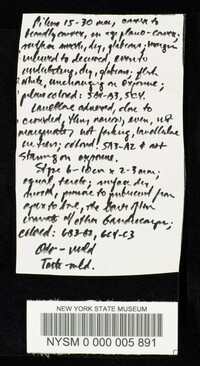 Pileus 15-30 mm, convex to
broadly convex, in age plano-convex,
surface smooth, dry, glabrous, margin
incurved to decurved, even to
undulating, dry, glabrous, flesh
white, unchanging on exposure;
colored: 5A3, 5C4.
Lamellae adnexed, close to
crowded, thin, narrow, even, not
marginate, not forking, lamellulae
in tiers; colored: 5A3-A2 & not
staining on exposure.
Stipe 6-10 cm x 2-3 mm;
equal, terete; surface dry,
smooth, to pruinose from
apex to base, the
of other
colored: 6C4-C3
Odor - mild
Taste - mild.
NEW YORK STATE MUSEUM
NYSM 0 000 005 891